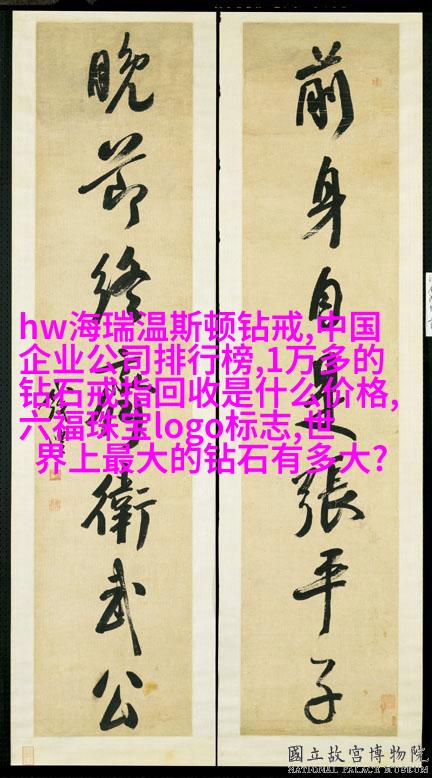 hw海瑞温斯顿钻戒,中国
企业公司排行榜,1万多的
钻石戒指回收是什么价格,
六福珠宝logo标志,世
界上最大的钻石有多大?
前身自是張平子
晚節終衛武公
國立故宮博物院
NATIONAL PALACE MUSEUM